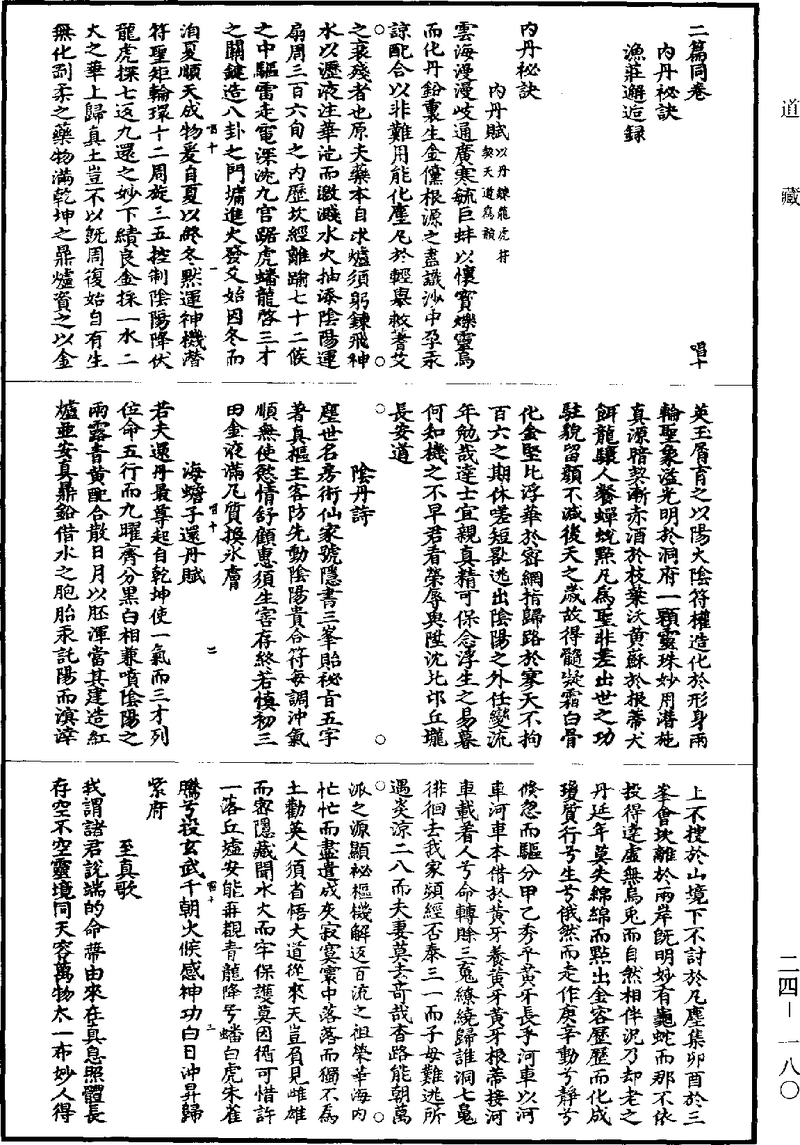 道藏
二篇同卷 唱十
內丹祕訣
漁莊邂逅録
內丹祕訣
內丹賦 以丹鍊龍虎符契天道爲韻
雲海漫漫歧通廣寒毓巨蚌以懷寶爍靈烏
而化丹鉛裏生金儻根源之盡識沙中孕汞
諒配合以非難用能化塵凡於輕舉救耆艾
之衰殘者也原夫藥本自求爐須躬鍊飛神
水以瀝液注華池而激濺水火抽添陰陽運
扇周三百六旬之內歷坎經離踰七十二候
之中驅雷走電深沈九宮踞虎蟠龍啓三才
之關鍵造八卦之門墉進火發爻始因冬而
洎夏順天成物爰自夏以終冬默運神機潛
唱十 一
符聖矩輪環十二周旋三五控制陰陽降伏
龍虎探七返九還之妙下績良金採一水二
火之華上歸真土豈不以旣周復始自有生
無化剛柔之藥物滿乾坤之鼎爐資之以金
英玉屑育之以陽火陰符權造化於形身兩
輪聖象溢光明於洞府一顆靈珠妙用潛施
真源暗契漸赤酒於枝葉沃黄酥於根蔕犬
餌龍驤人餐蟬蛻點凡爲聖非差出世之功
駐貌留顔不減後天之歲故得髓凝霜白骨
化金堅比浮華於密網指歸路於寥天不拘
百六之期休嗟短晷迯出陰陽之外任變流
年勉哉達士宜親真精可保念浮生之易暮
何知機之不早君看榮辱與陞沈比邙丘壠
長安道
陰丹詩
塵世名房術仙家號隱書三峯貽秘旨五字
著真樞主客防先動陰陽貴合符每調沖氣
順無使慾情舒顧惠須生害存終若慎初三
田金液滿凡質換冰膚
唱十 二
海蟾子還丹賦
若夫還丹最尊起自乾坤使一氣而三才列
位命五行而九曜齊分黑白相兼噴陰陽之
雨露青黄配合散日月以胚渾當其建造紅
爐亜安真鼎鉛借水之胞胎汞託陽而溟涬
上不搜於山境下不討於凡塵集卯酉於三
峯會坎離於兩岸旣明妙有龜蛇而那不依
投得達虛無烏兎而自然相伴況乃却老之
丹延年莫失綿綿而點出金容歷歷而化成
瓊質行兮生兮俄然而走作庚辛動兮靜兮
倏忽而驅分甲乙秀乎黄牙長乎河車以河
車河車本借於黄牙養黄牙黄牙根蔕接河
車載著人兮命轉賒三䰟繚繞歸誰洞七䰟
徘徊去我家頻經否泰三一而子母難逃所
遇炎涼二八而夫妻莫去奇哉杳路能朝萬
派之源顯祕樞機解返百流之祖榮華海内
忙忙而盡遣成灰寂寞寰中落落而獨不爲
土勸英人須省悟大道從來天豈肎見雌雄
而密隱藏聞水火而牢保護莫因循可惜許
一落丘墟安能再覩青龍降兮蟠白虎朱雀
唱十 三
騰兮投玄武千朝火候感神功白日沖昇歸
紫府
至真歌
我謂諸君說端的命蔕由來在真息照體長
存空不空靈境同天容萬物太一布妙人得
二四—一八〇